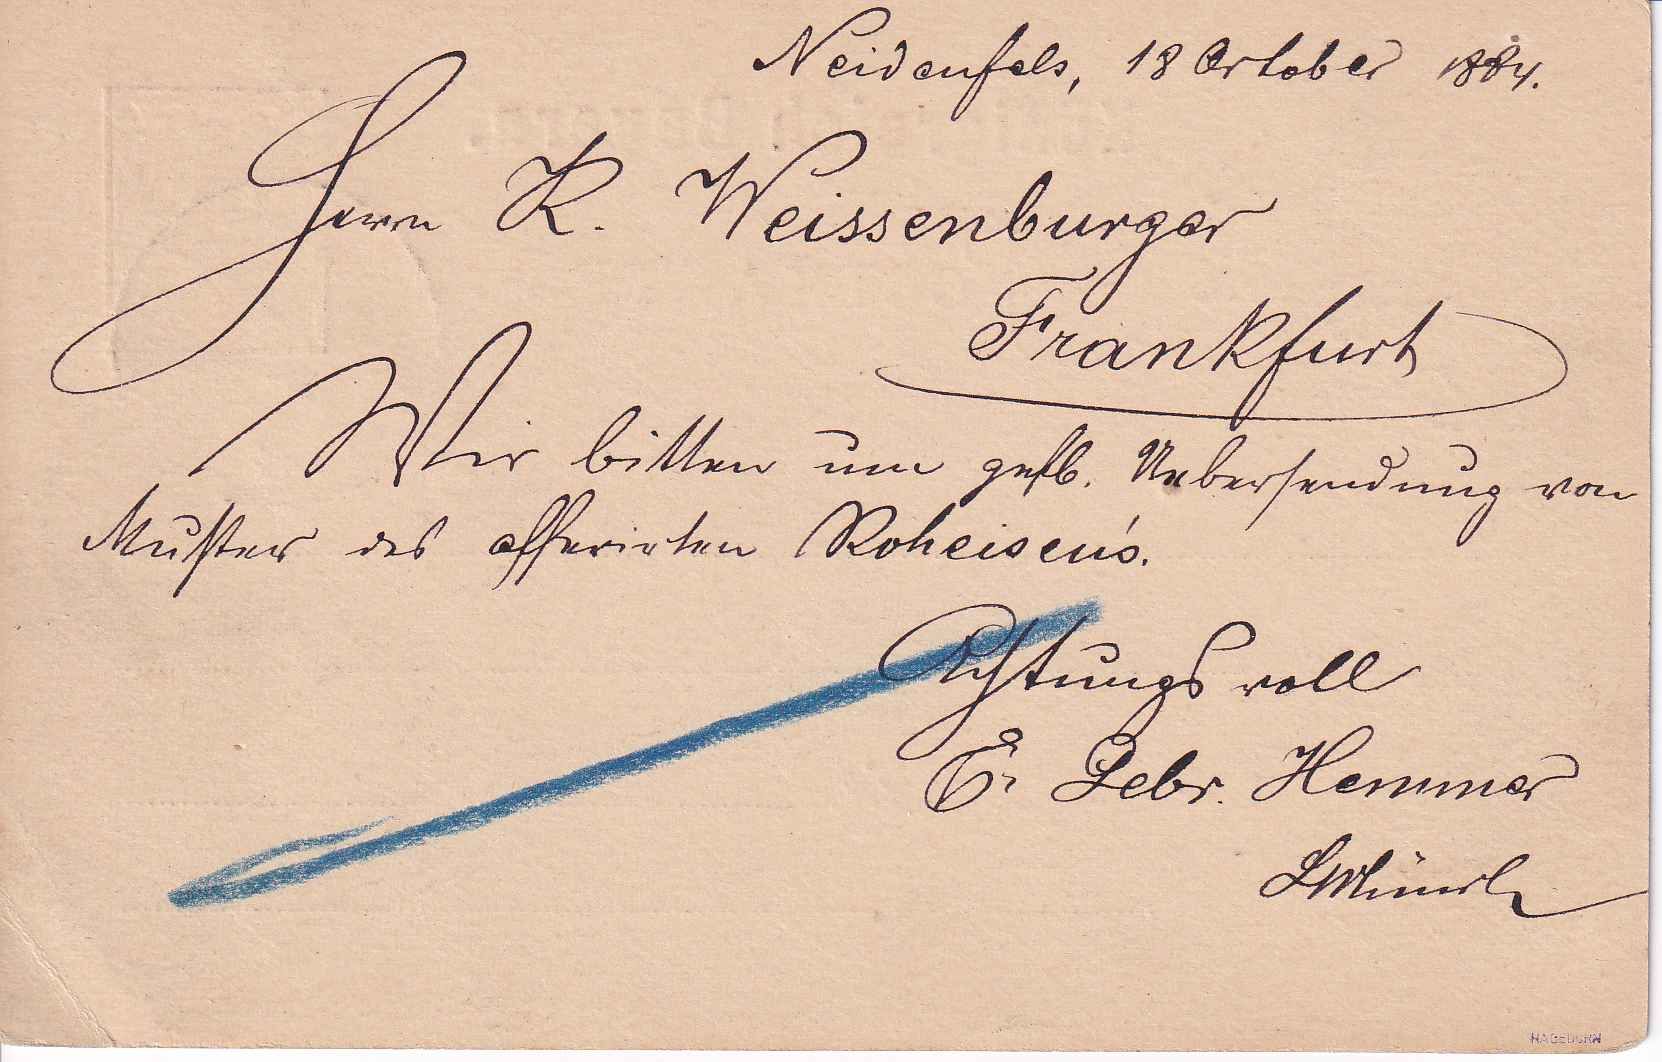 Neidenfels, 18 October 1884.
Herrn K. Weissenburger
Frankfurt
Wir bitten um gefl. Uebersendung von
Muster des offerirten Roheisen's.
Achtungsvoll
Gebr. Hemmer
HAGEDORN